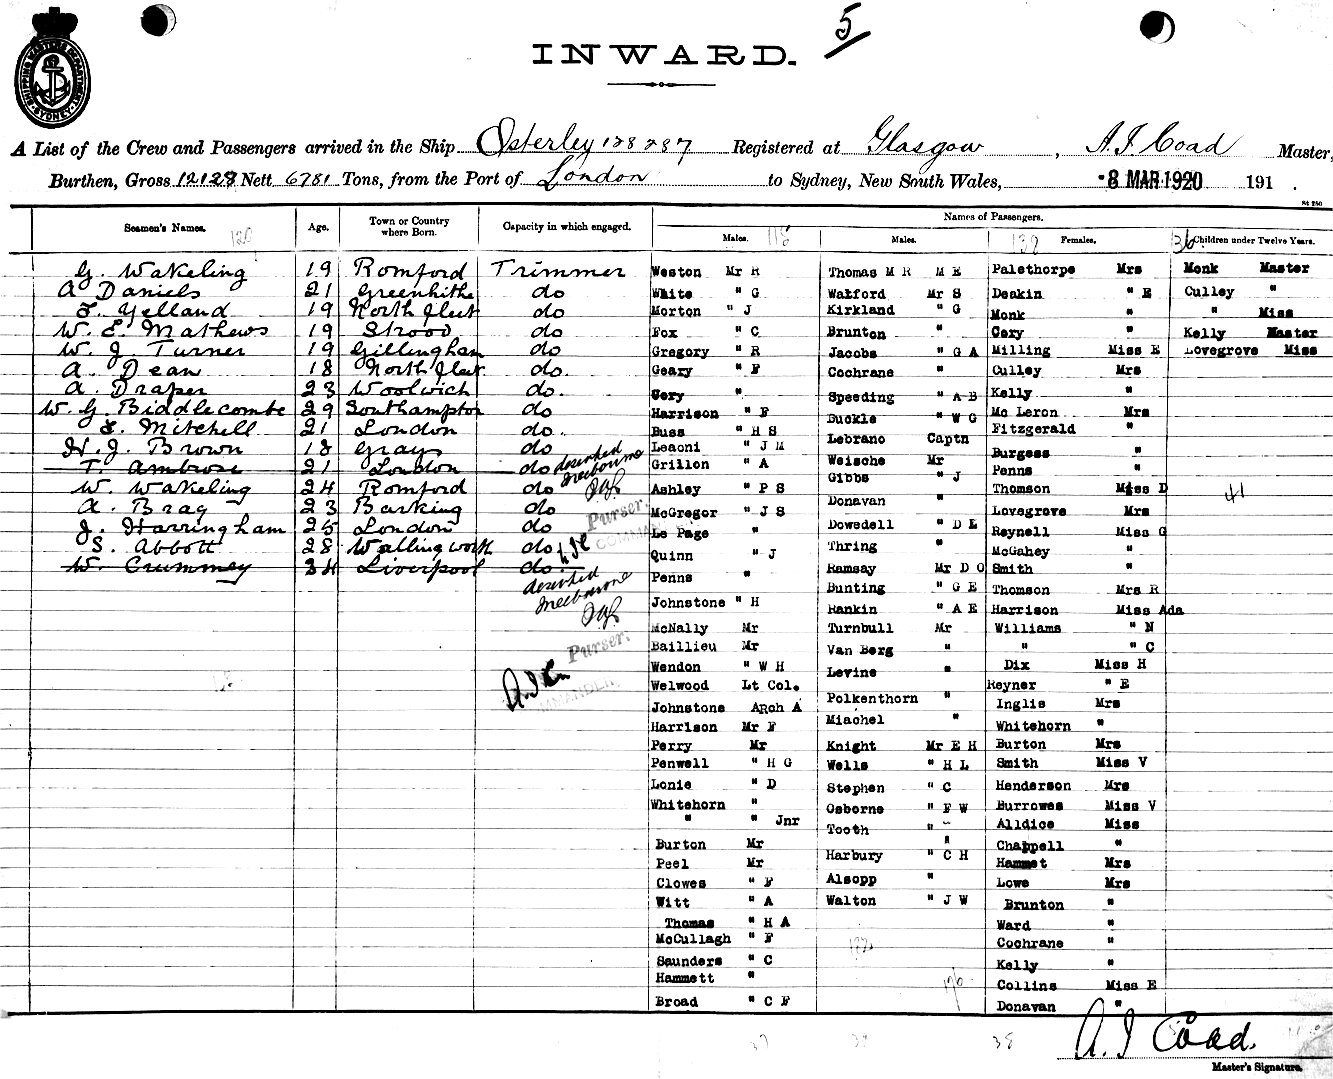 5
INWARD.
SHIPPING MASTERS DEPARTMENT SYDNEY
A List of the Crew and Passengers arrived in the Ship Osterley 128287 Registered at Glasgow, A. J. Coad Master,
Burthen, Gross 12129 Nett 6781 Tons, from the Port of London to Sydney, New South Wales, -8 MAR 1920 191 .
Seamen's Names. Age. Town or Country where Born. Capacity in which engaged.
G. Wakeling 19 Romford Trimmer
A Daniels 21 Greenhithe do
F. Yelland 19 North fleet do
W. E. Mathews 19 Strood do
W. J. Turner 19 Gillingham do
A. Dean 18 North fleet do.
A. Draper 23 Woolwich do.
W. G. Biddlecombe 29 Southampton do
S. Mitchell 21 London do.
H. J. Brown 18 Grays do
T. Ambrose 21 London do deserted Melbourne
W. Wakeling 24 Romford do
A. Brag 23 Barking do Purser.
J. Harringham 25 London do
S. Abbott 28 Wallingworth do
W. Crummey 34 Liverpool do.
deserted
Melbourne
Purser.
Names of Passengers.
Males. 118
Weston Mr R
White " G
Morton " J
Fox " C
Gregory " R
Geary " F
Gery "
Harrison " F
Buss " H S
Leaoni " J M
Grillon " A
Ashley " P S
McGregor " J S
Le Page "
Quinn " J
Penns "
Johnstone " H
McNally Mr
Baillieu Mr
Wendon " W H
Welwood Lt Col.
Johnstone Arch A
Harrison Mr F
Perry Mr
Penwell " H G
Lonie " D
Whitehorn "
" " Jnr
Burton Mr
Peel Mr
Clowes " F
Witt " A
Thomas " H A
McCullagh " F
Saunders " C
Hammett "
Broad " C F
Males.
Thomas M R M E
Watford Mr S
Kirkland " G
Brunton "
Jacobs " G A
Cochrane "
Speeding " A B
Buckle " W G
Lebrano Captn
Weische Mr
Gibbs " J
Donavan "
Dowsdell " D E
Thring "
Ramsay Mr D O
Bunting " G E
Rankin " A E
Turnbull Mr
Van Berg "
Levine "
Polkenthorn "
Miachel "
Knight Mr E H
Wells " H L
Stephen " C
Osborne " F W
Tooth " "
Harbury " C H
Alsopp "
Walton " J W
Females.
Palethorpe Mrs
Deakin " E
Monk "
Cery "
Milling Miss E
Culley Mrs
Kelly "
Mc Leron Mrs
Fitzgerald "
Burgess "
Penns "
Thomson Miss D
Lovegrove Mrs
Reynell Miss G
McGahey "
Smith "
Thomson Mrs R
Harrison Miss Ada
Williams " N
" " C
Dix Miss H
Reyner " E
Inglis Mrs
Whitehorn "
Burton Mrs
Smith Miss V
Henderson Mrs
Burrowes Miss V
Alldice Miss
Chappell "
Hammet Mrs
Lowe Mrs
Brunton "
Ward "
Cochrane "
Kelly "
Collins Miss E
Donavan "
36 Children under Twelve Years.
Monk Master
Culley "
" Miss
Kelly Master
Lovegrove Miss
41
37
38
A. J Coad.
Master's Signature.